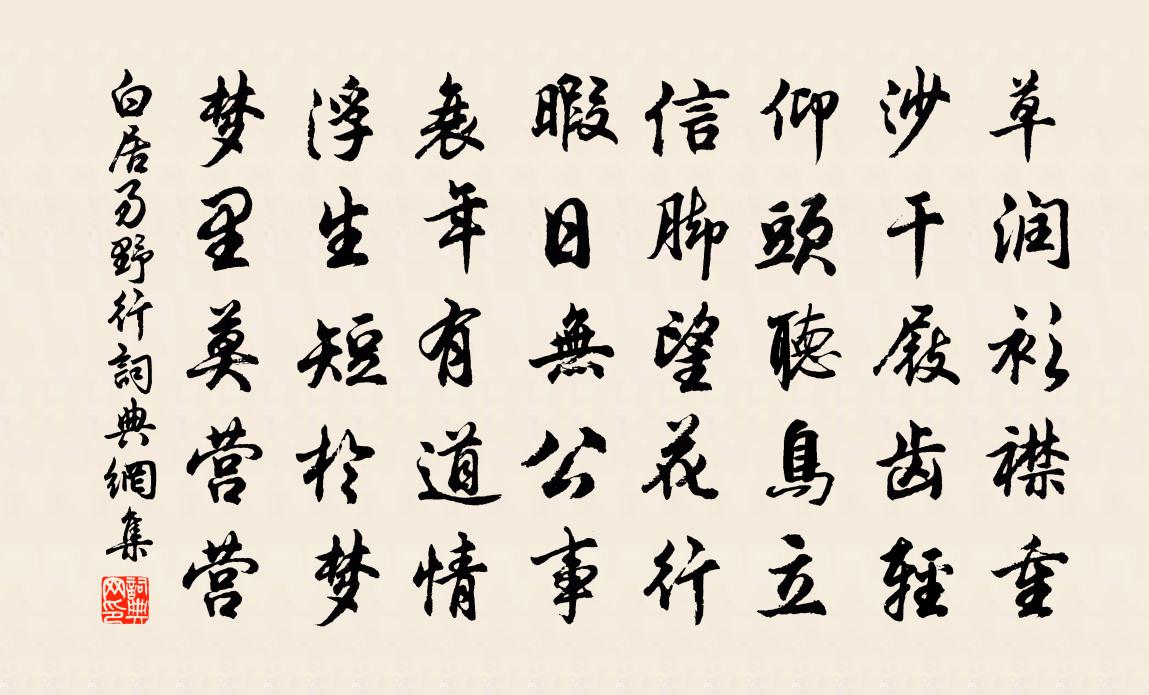 草润衫襟重
沙干屐齿輕
仰頭聽鳥立
信脚望花行
暇日無公事
衰年有道情
浮生短於梦
梦里莫营营
白居易野行詞典網集
詞典网印